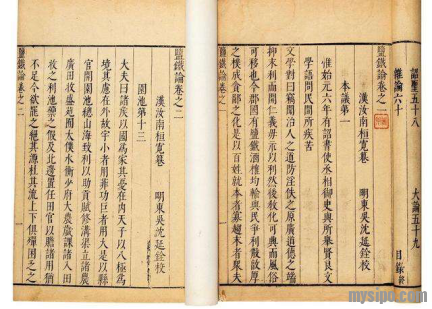 詔聖五十八 大論五十九
雜論六十 目錄終
鹽鐵論卷之一
漢汝南桓寬纂 明東吳沈延銓校
本議第一
惟始元六年有詔書使丞相御史與所舉賢良文
學語問民間所疾苦
文學對曰竊聞治人之道防淫佚之原廣道德之端
抑末利而開仁義毋示以利然後教化可興而風俗
可移也今郡國有鹽鐵酒榷均輸與民爭利散敦厚
之樸成貪鄙之化是以百姓就本者寡趨末者眾夫
鹽鐵論卷之二
漢汝南桓寬纂 明東吳沈延銓校
園池第十三
大夫曰諸侯以國為家其憂在內天子以八極為
境其慮在外故宇小者用菲功巨者用大是以縣
官開園池總山海致利以助貢賦修溝渠立諸農
廣田收盛苑囿太僕水衡少府大農歲課諸入田
收之利池籞之假及北邊置任田官以贍諸用猶
不足今欲罷之絕其源杜其流上下俱殫困乏之
鹽鐵論卷之二
mysipo.com